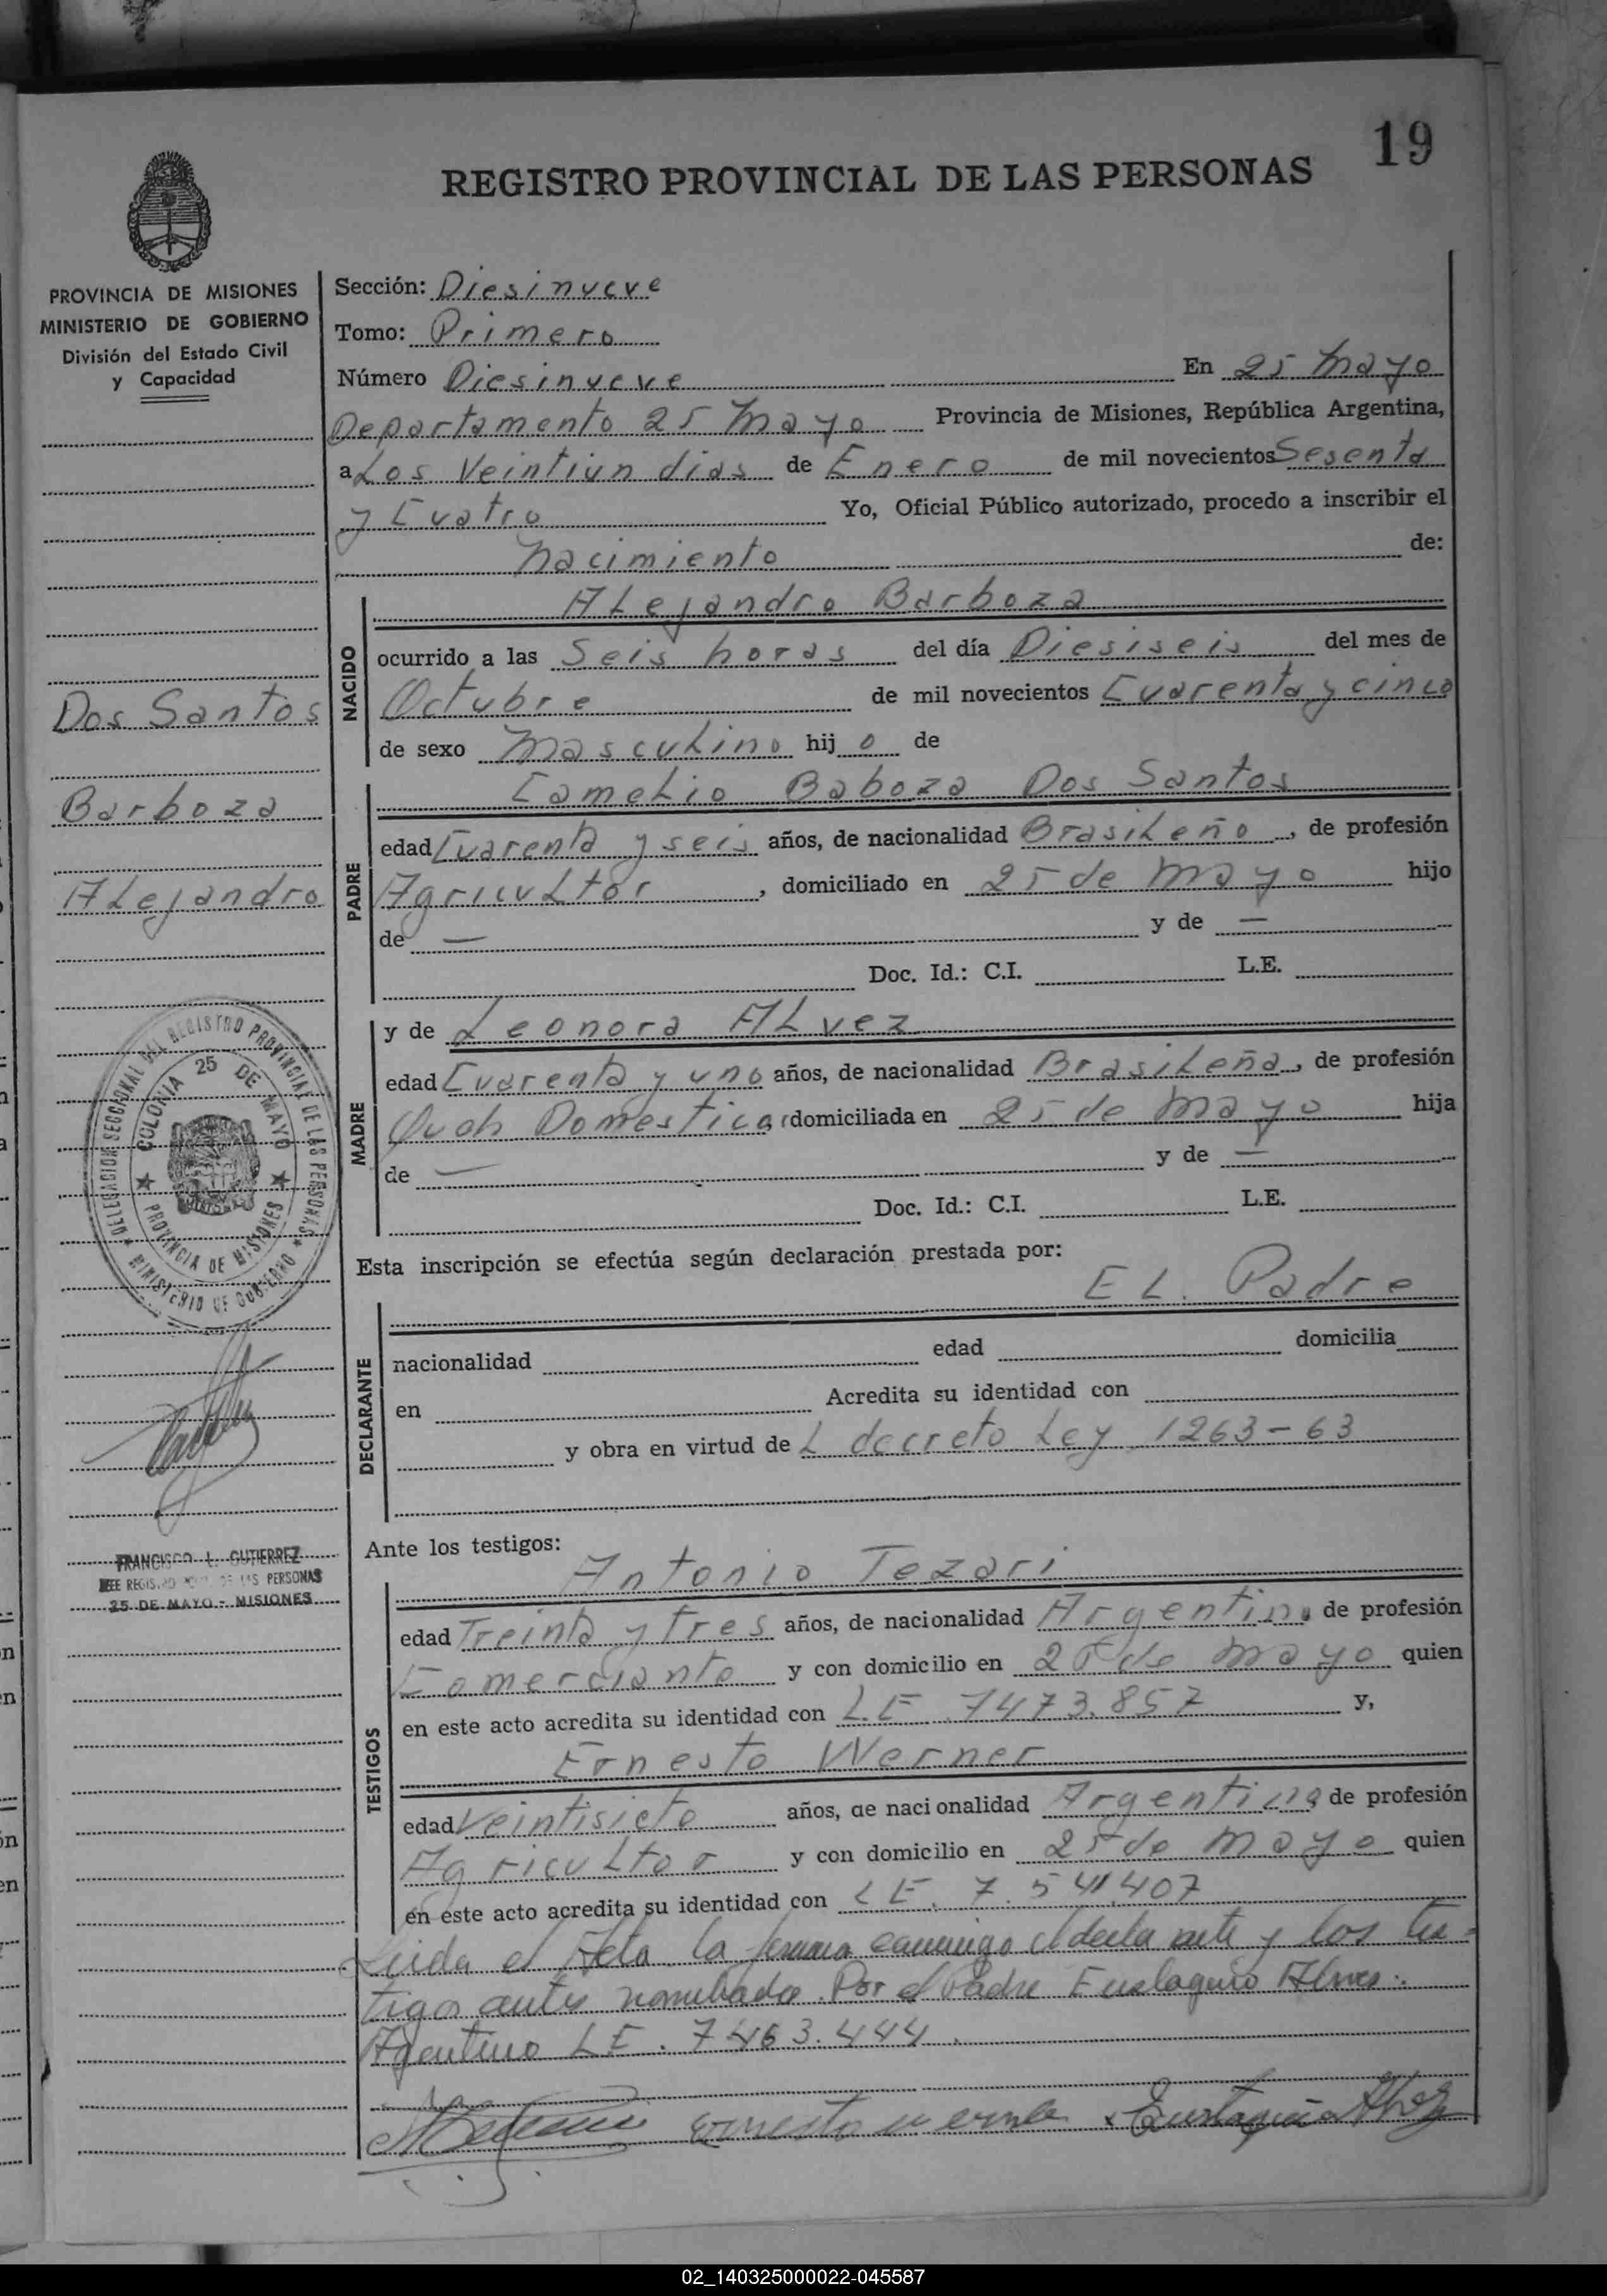 19
REGISTRO PROVINCIAL DE LAS PERSONAS
PROVINCIA DE MISIONES
MINISTERIO DE GOBIERNO
División del Estado Civil
y Capacidad
Sección: Diesinueve
Tomo: Primero
Número Diesinueve En 25 Mayo
Departamento 25 Mayo Provincia de Misiones, República Argentina,
a Los Veintiun dias de Enero de mil novecientos Sesenta
y Cuatro Yo, Oficial Público autorizado, procedo a inscribir el
Nacimiento de:
NACIDO
ALejandro Barboza
ocurrido a las Seis horas del día Diesiseis del mes de
Octubre de mil novecientos Cuarenta y cinco
de sexo MascuLino hijo de
Dos Santos
Barboza
ALejandro
PADRE
CameLio Baboza Dos Santos
edad Cuarenta y seis años, de nacionalidad BrasiLeño, de profesión
AgricuLtor, domiciliado en 25 de Mayo hijo
de — y de —
Doc. Id.: C.I. L.E.
MADRE
y de Leonora ALvez
edad Cuarenta y uno años, de nacionalidad BrasiLeña, de profesión
Domestica domiciliada en 25 de Mayo hija
de — y de —
Doc. Id.: C.I. L.E.
DELEGACION SECCIONAL DEL REGISTRO PROVINCIAL DE LAS PERSONAS
★ MINISTERIO DE GOBIERNO ★
COLONIA 25 DE MAYO
★ PROVINCIA DE MISIONES ★
Esta inscripción se efectúa según declaración prestada por:
EL Padre
DECLARANTE
nacionalidad edad domicilia
en Acredita su identidad con
y obra en virtud de L decreto Ley 1263-63
FRANCISCO L. GUTIERREZ
JEFE REGISTRO DE LAS PERSONAS
25 DE MAYO - MISIONES
Ante los testigos:
TESTIGOS
Antonio Tezari
edad Treinta y tres años, de nacionalidad Argentino de profesión
Comerciante y con domicilio en 25 de Mayo quien
en este acto acredita su identidad con L.E. 7473.857 y,
Ernesto Werner
edad Veintisiete años, de nacionalidad Argentina de profesión
AgricuLtor y con domicilio en 25 de Mayo quien
en este acto acredita su identidad con LE. 7.541.407
Leida el Acta la conmigo el y los tes-
tigos antes Por el Padre Eustaquio
Argentino LE. 7463.444.
Ernesto Werner Eustaquio
02_140325000022-045587